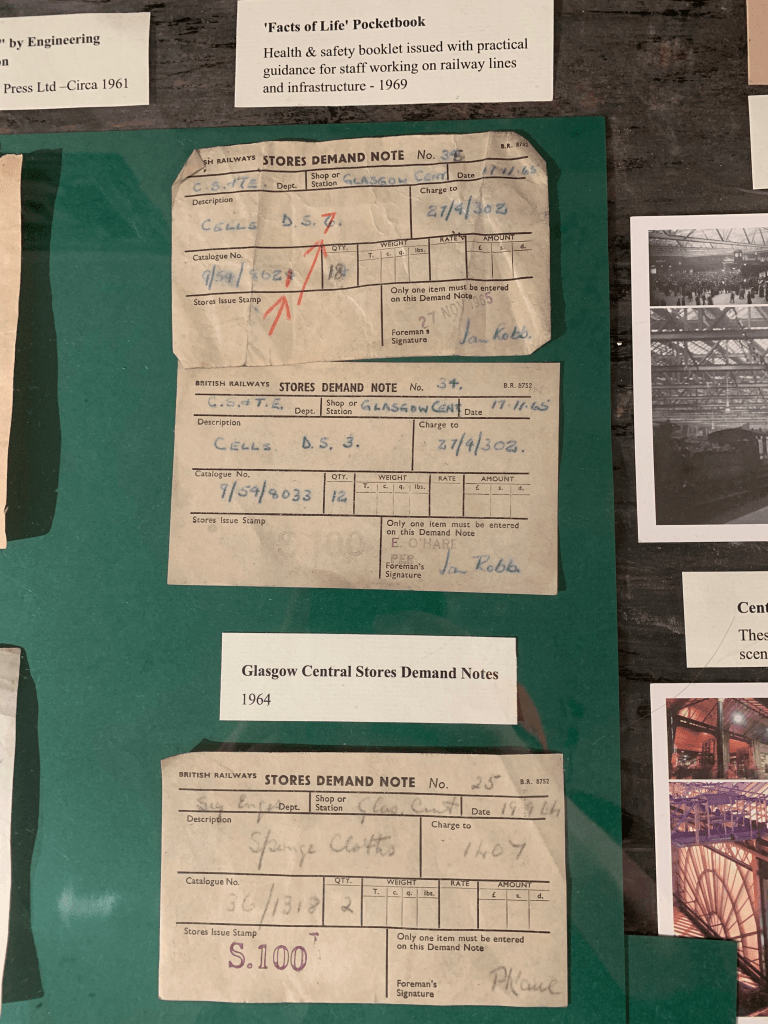 " by Engineering
n
Press Ltd –Circa 1961
'Facts of Life' Pocketbook
Health & safety booklet issued with practical
guidance for staff working on railway lines
and infrastructure - 1969
SH RAILWAYS STORES DEMAND NOTE No. 35 B.R. 8752
C.S.&T.E. Dept. Shop or Station GLASGOW CENT Date 17.11.65
Description Charge to
CELLS D.S. 27/9/302
Catalogue No. QTY. WEIGHT RATE AMOUNT
T. c. q. lbs. £ s. d.
9/59/ 18
Stores Issue Stamp Only one item must be entered
on this Demand Note
27 NOV 1965
Foreman's
Signature Ian Robb.
BRITISH RAILWAYS STORES DEMAND NOTE No. 34. B.R. 8752
C.S.&T.E. Dept. Shop or Station GLASGOW CENT Date 17.11.65
Description Charge to
CELLS D.S. 3. 27/9/302.
Catalogue No. QTY. WEIGHT RATE AMOUNT
T. c. q. lbs. £ s. d.
9/59/8033 12
Stores Issue Stamp Only one item must be entered
on this Demand Note
E. O'HARE
PER
Foreman's
Signature Ian Robb
Glasgow Central Stores Demand Notes
1964
BRITISH RAILWAYS STORES DEMAND NOTE No. 25 B.R. 8752
Dept. Shop or Station Glas. Cent Date 19 9 64
Description Charge to
Sponge Cloths 1407
Catalogue No. QTY. WEIGHT RATE AMOUNT
T. c. q. lbs. £ s. d.
36/1318 2
Stores Issue Stamp Only one item must be entered
S.100 T on this Demand Note
Foreman's
Signature
Cent
Thes
scen